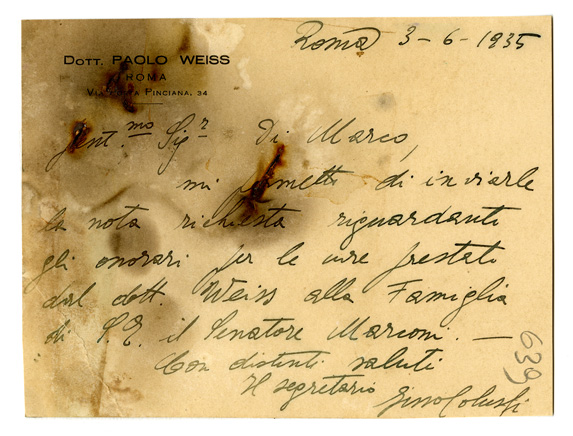 Roma 3-6-1935
Dott. PAOLO WEISS
ROMA
Via Porta Pinciana, 34
Gent.mo Sigr Di Marco,
mi permetto di inviarle
la nota richiesta riguardanti
gli onorari per le cure prestati
dal dott. Weiss alla Famiglia
di S.E. il Senatore Marconi. —
Con distinti saluti
Il segretario
Gino
639